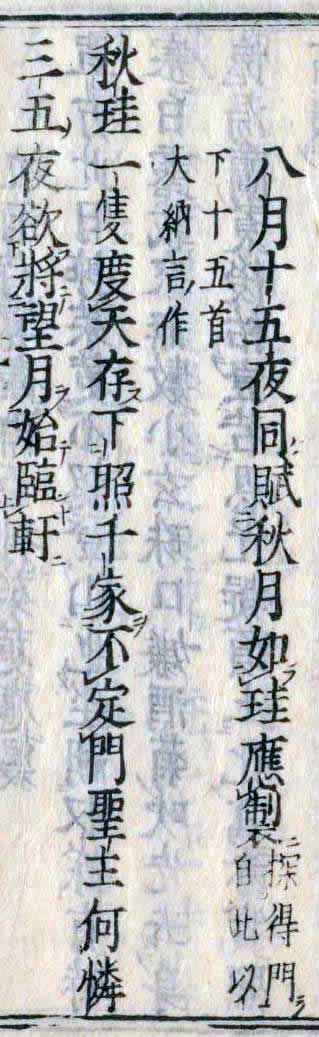 八月十五夜同賦秋月如珪應製 探得門
自此以
下十五首
大納言作
秋珪一隻度天存下照千家不定門聖主何憐
三五夜欲將望月始臨軒